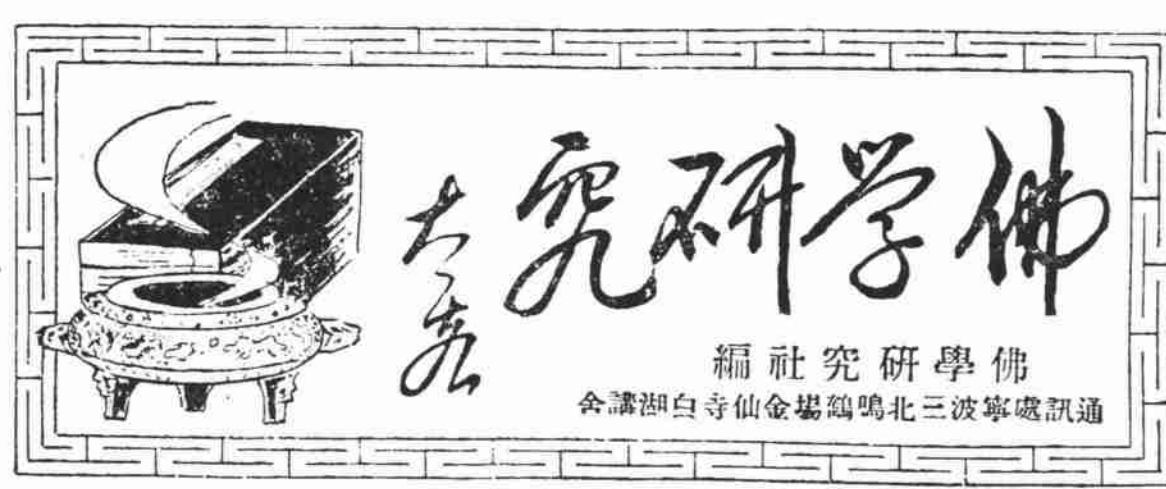 佛学研究
佛學研究社編
通訊處寧波三北鳴鶴場金仙寺白湖講舍